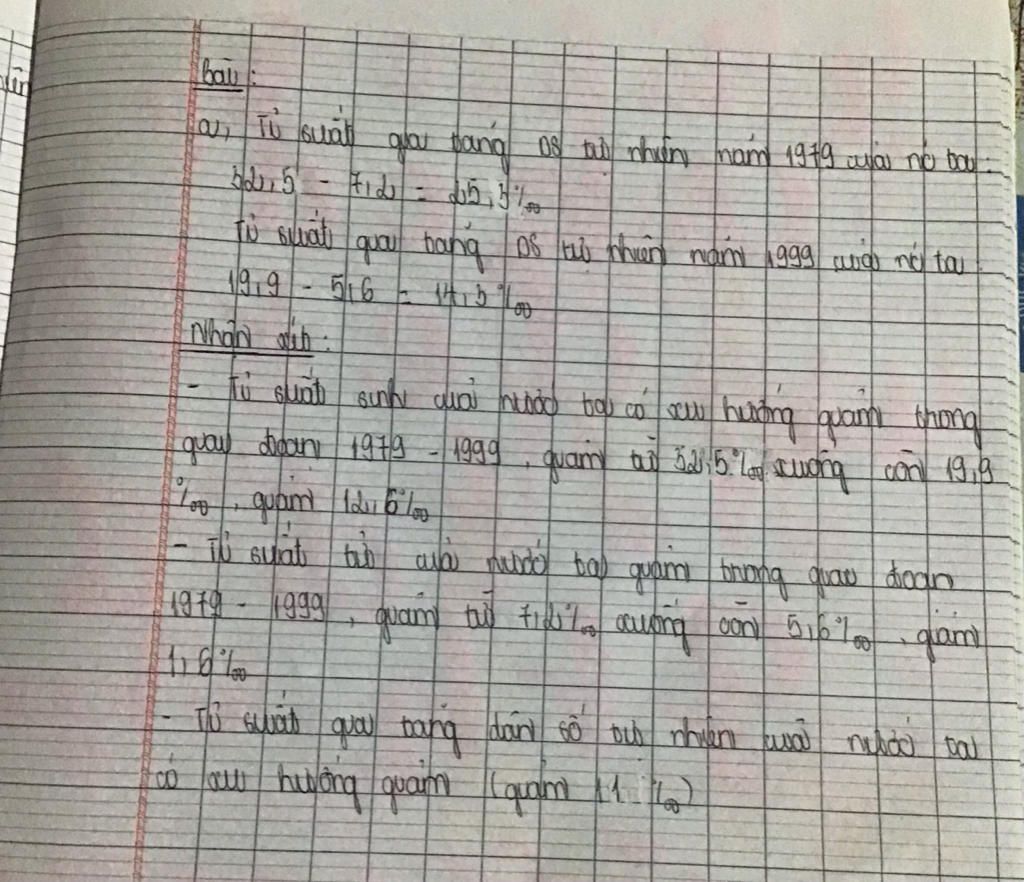 Bài:
a, Tỉ suất gia tăng DS tự nhiên năm 1979 của nc ta:
32,5 - 7,2 = 25,3‰
Tỉ suất gia tăng DS tự nhiên năm 1999 của nc ta
19,9 - 5,6 = 14,3‰
Nhận định:
- Tỉ suất sinh của nước ta có xu hướng giảm trong
giai đoạn 1979 - 1999, giảm từ 32,5‰ xuống còn 19,9
‰, giảm 12,6‰
- Tỉ suất tử của nước ta giảm trong giai đoạn
1979 - 1999, giảm từ 7,2‰ xuống còn 5,6‰, giảm
1,6‰
- Tỉ suất gia tăng dân số tự nhiên của nước ta
có xu hướng giảm (giảm 11 ‰)